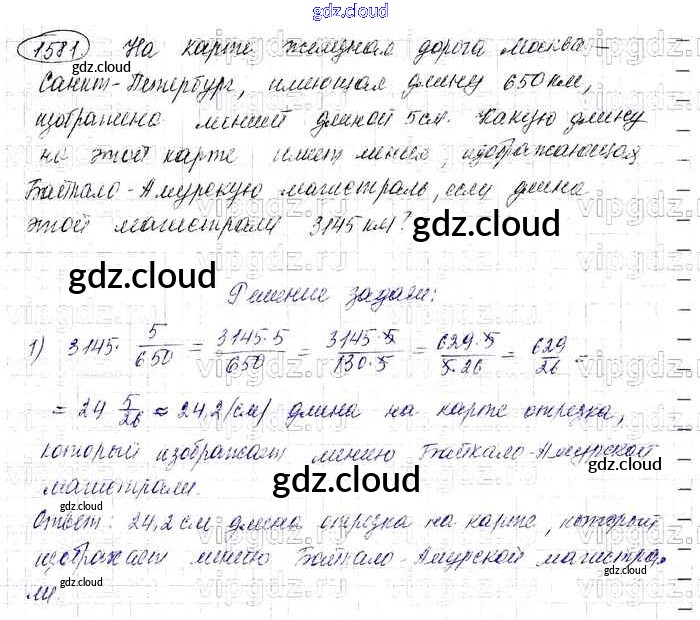 gdz.cloud
1581 На карте железная дорога Москва-
Санкт-Петербург, имеющая длину 650 км,
изображена линией длиной 5 см. Какую длину
на этой карте имеет линия, изображающая
Байкало-Амурскую магистраль, если длина
этой магистрали 3145 км?
gdz.cloud
gdz.cloud
Решение задачи:
1) 3145 · 5/650 = 3145·5/650 = 3145·5/130·5 = 629·5/5·26 = 629/26 =
= 24 5/26 ≈ 24,2 (см) длина на карте отрезка,
который изображает линию Байкало-Амурской
магистрали.
gdz.cloud
Ответ: 24,2 см длина отрезка на карте, который
изображает линию Байкало-Амурской магистра-
ли.
gdz.cloud